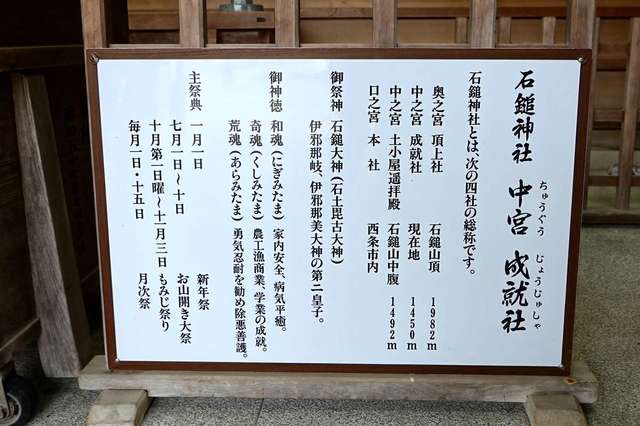 石鎚神社 中宮 成就社
ちゅうぐう じょうじゅしゃ
石鎚神社とは、次の四社の総称です。
奥之宮 頂上社 石鎚山頂 1982m
中之宮 成就社 現在地 1450m
中之宮 土小屋遥拝殿 石鎚山中腹 1492m
口之宮 本社 西条市内
御祭神 石鎚大神（石土毘古大神）
伊邪那岐、伊邪那美大神の第二皇子。
御神徳 和魂（にぎみたま）家内安全、病気平癒。
奇魂（くしみたま）農工漁商業、学業の成就。
荒魂（あらみたま）勇気忍耐を勧め除悪善護。
主祭典 一月一日 新年祭
七月一日～十日 お山開き大祭
十月第一日曜～十一月三日 もみじ祭り
毎月一日・十五日 月次祭